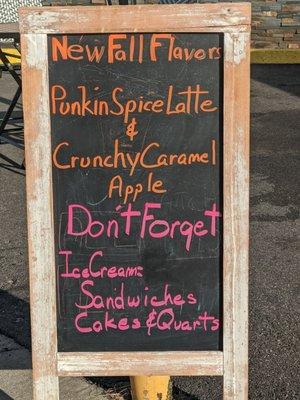 New Fall Flavors
Punkin Spice Latte
&
Crunchy Caramel
Apple
Don't Forget
Ice Cream:
Sandwiches
Cakes & Quarts